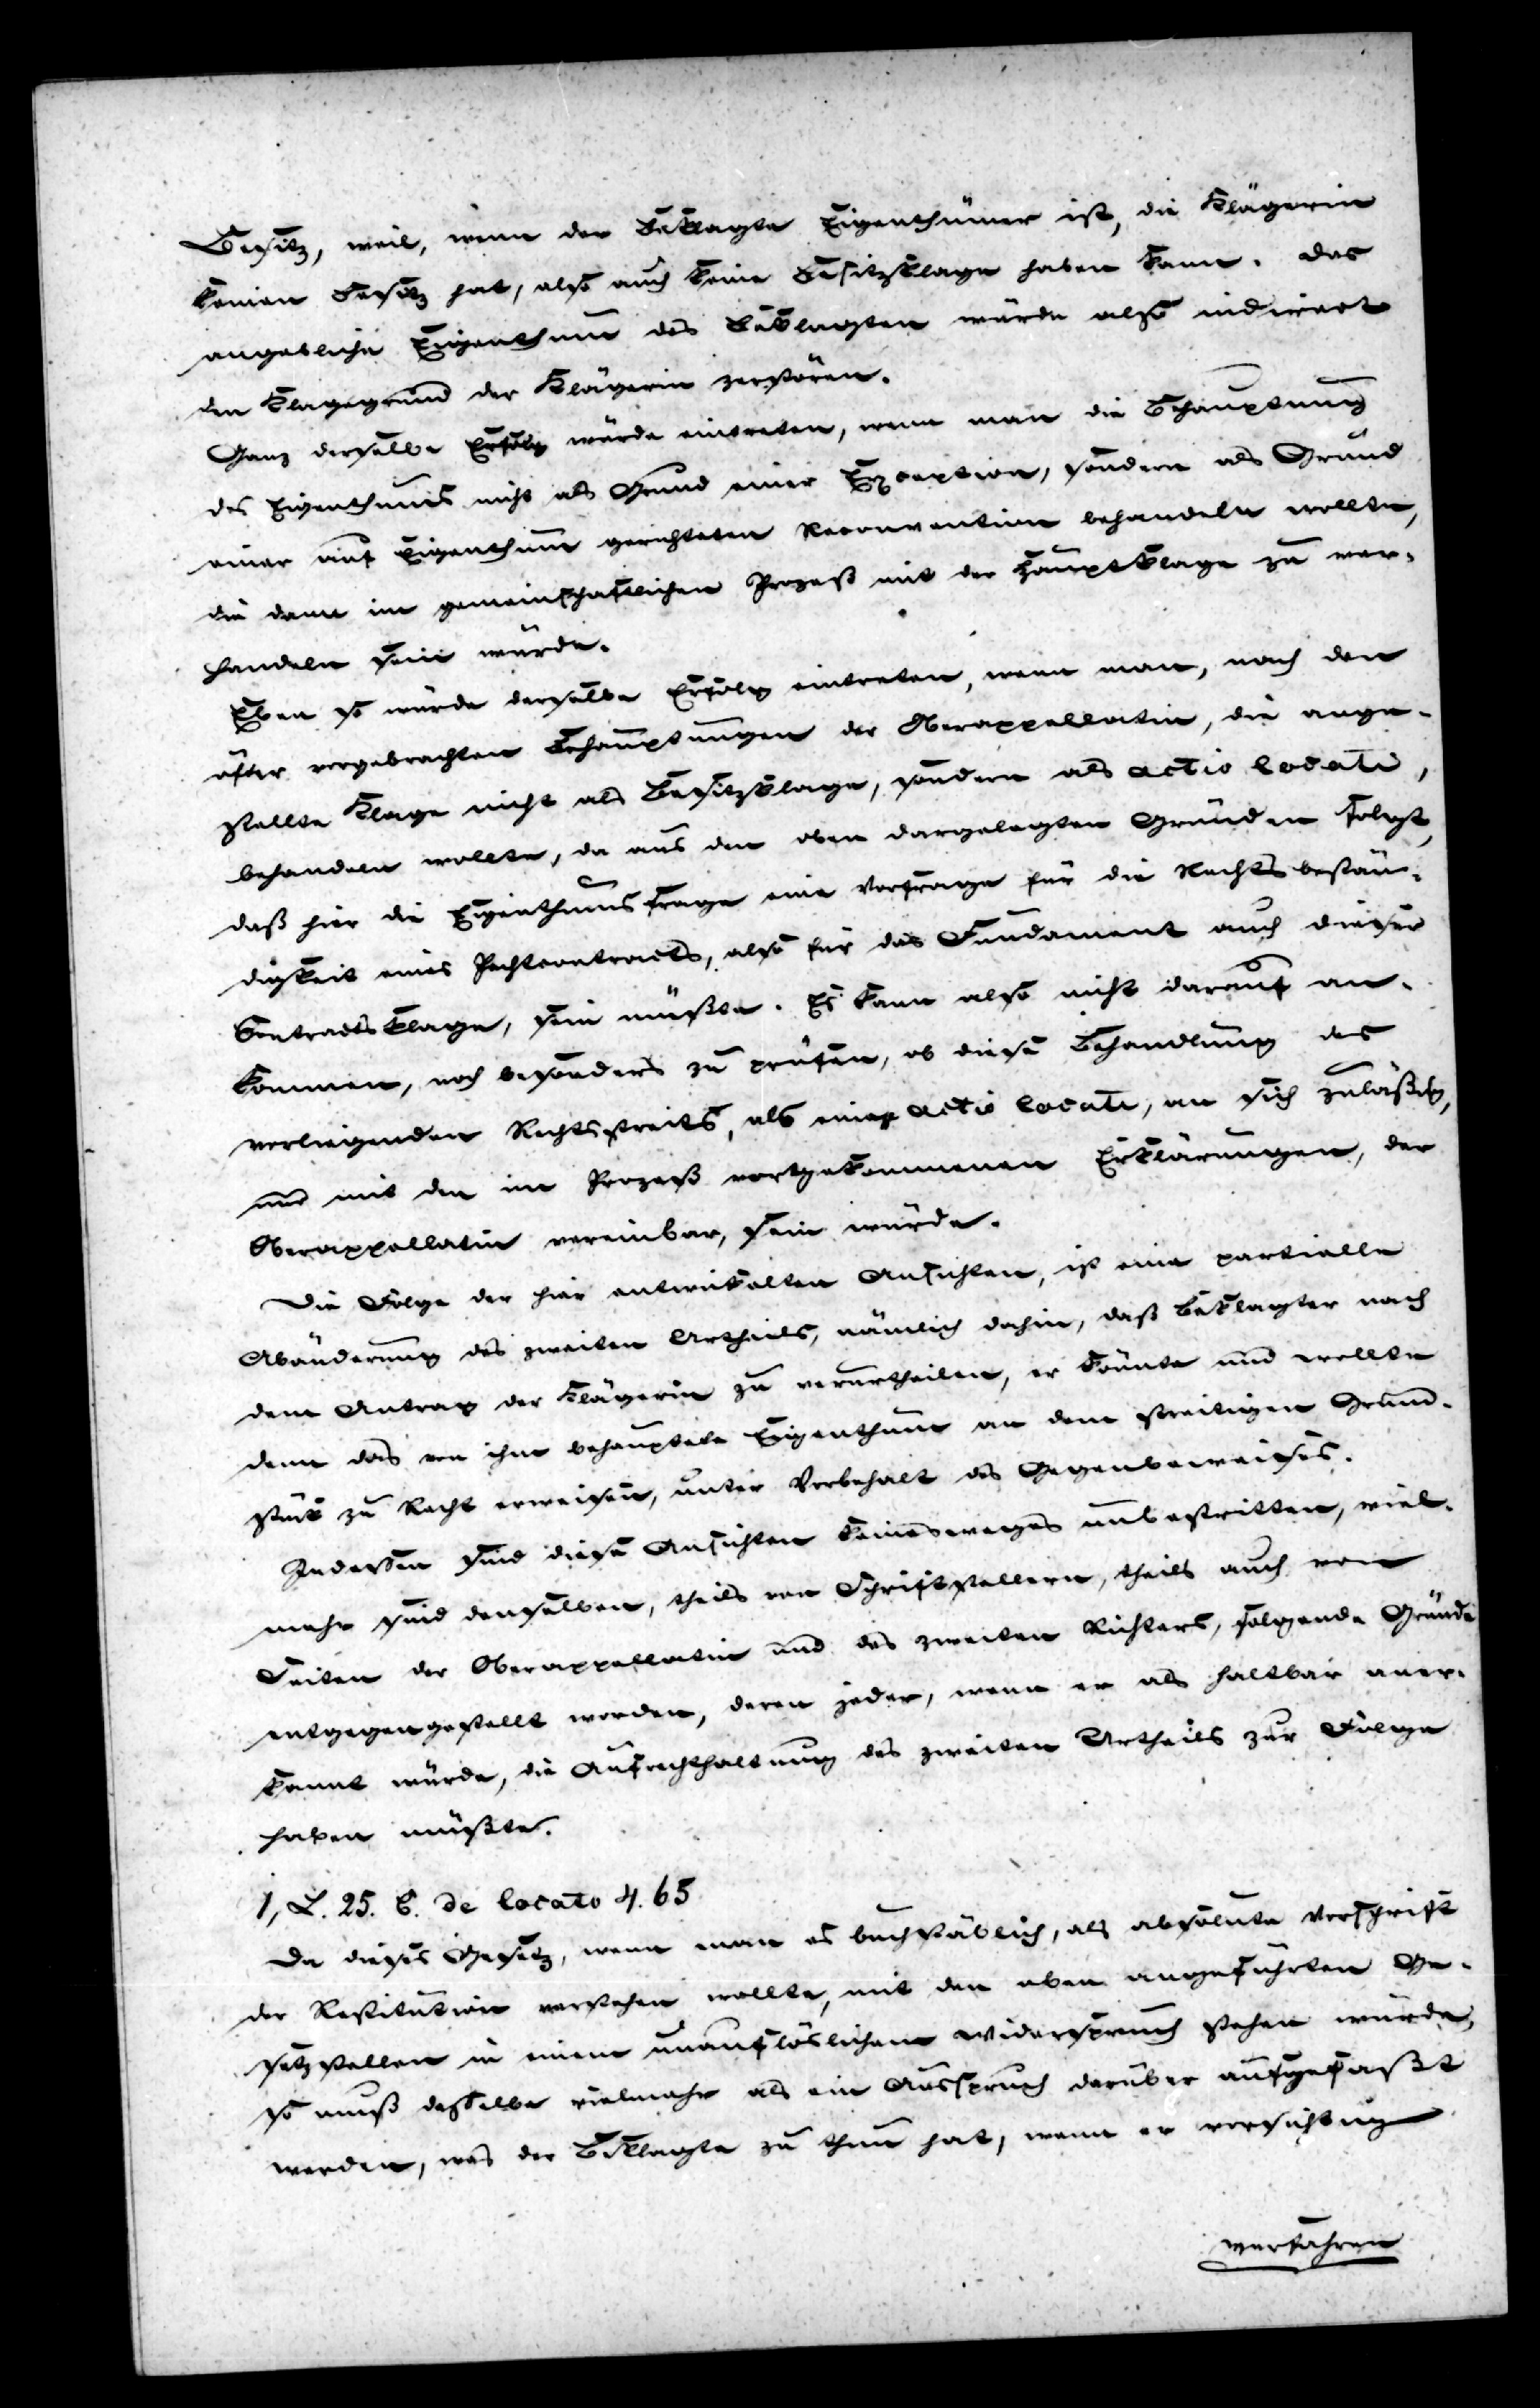 Besitz, weil, wenn der Beklagte Eigenthümer ist, die Klägerin
keinen Besitz hat, also auch keine Besitzklage haben kann. Das
angebliche Eigenthum des Beklagten würde also indirect
den Klagegrund der Klägerin zerstören.
Ganz derselbe Erfolg würde eintreten, wenn man die Behauptung
des Eigenthums nicht als Grund einer Exception, sondern als Grund
einer auf Eigenthum gerichteten Reconvention behandeln wollte,
die dann im gemeinschaftlichen Prozeß mit der Hauptklage zu ver-
handeln sein würde.
Eben so würde derselbe Erfolg eintreten, wenn man, nach den
öfter vorgebrachten Behauptungen der Oberappellatin, die ange-
stellte Klage nicht als Besitzklage, sondern als actio locati,
behandeln wollte, da aus den oben dargelegten Gründen folgt,
daß hier die Eigenthumsfrage eine Vorfrage für die Rechtsbestän-
digkeit eines Pachtcontracts, also für das Fundament auch dieser
Contractsklage, sein müßte. Es kann also nicht darauf an-
kommen, noch besonders zu prüfen, ob diese Behandlung des
vorliegenden Rechtsstreits, als einer actio locati, an sich zuläßig,
und mit den im Prozeß vorgekommenen Erklärungen, der
Oberappellatin vereinbar, sein würde.
Die Folge der hier entwickelten Ansichten, ist eine partielle
Abänderung des zweiten Urtheils, nämlich dahin, daß Beklagter nach
dem Antrag der Klägerin zu verurtheilen, er könnte und wollte
denn das von ihm behauptete Eigenthum an dem streitigen Grund-
stück zu Recht erweisen, unter Vorbehalt des Gegenbeweises.
Indessen sind diese Ansichten keineswegs unbestritten, viel-
mehr sind denselben, theils von Schriftstellern, theils auch von
Seiten der Oberappellatin und des zweiten Richters, folgende Gründe
entgegengestellt worden, deren jeder, wenn er als haltbar aner-
kannt würde, die Aufrechthaltung des zweiten Urtheils zur Folge
haben müßte.
1, L. 25. C. de locato 4. 65
Da dieses Gesetz, wenn man es buchstäblich, als absolute Vorschrift
der Restitution verstehen wollte, mit den oben angeführten Ge-
setzstellen in einem unauflöslichem Widerspruch stehen würde,
so muß dasselbe vielmehr als ein Ausspruch darüber aufgefaßt
werden, was der Beklagte zu thun hat, wenn er vorsichtig
verfahren